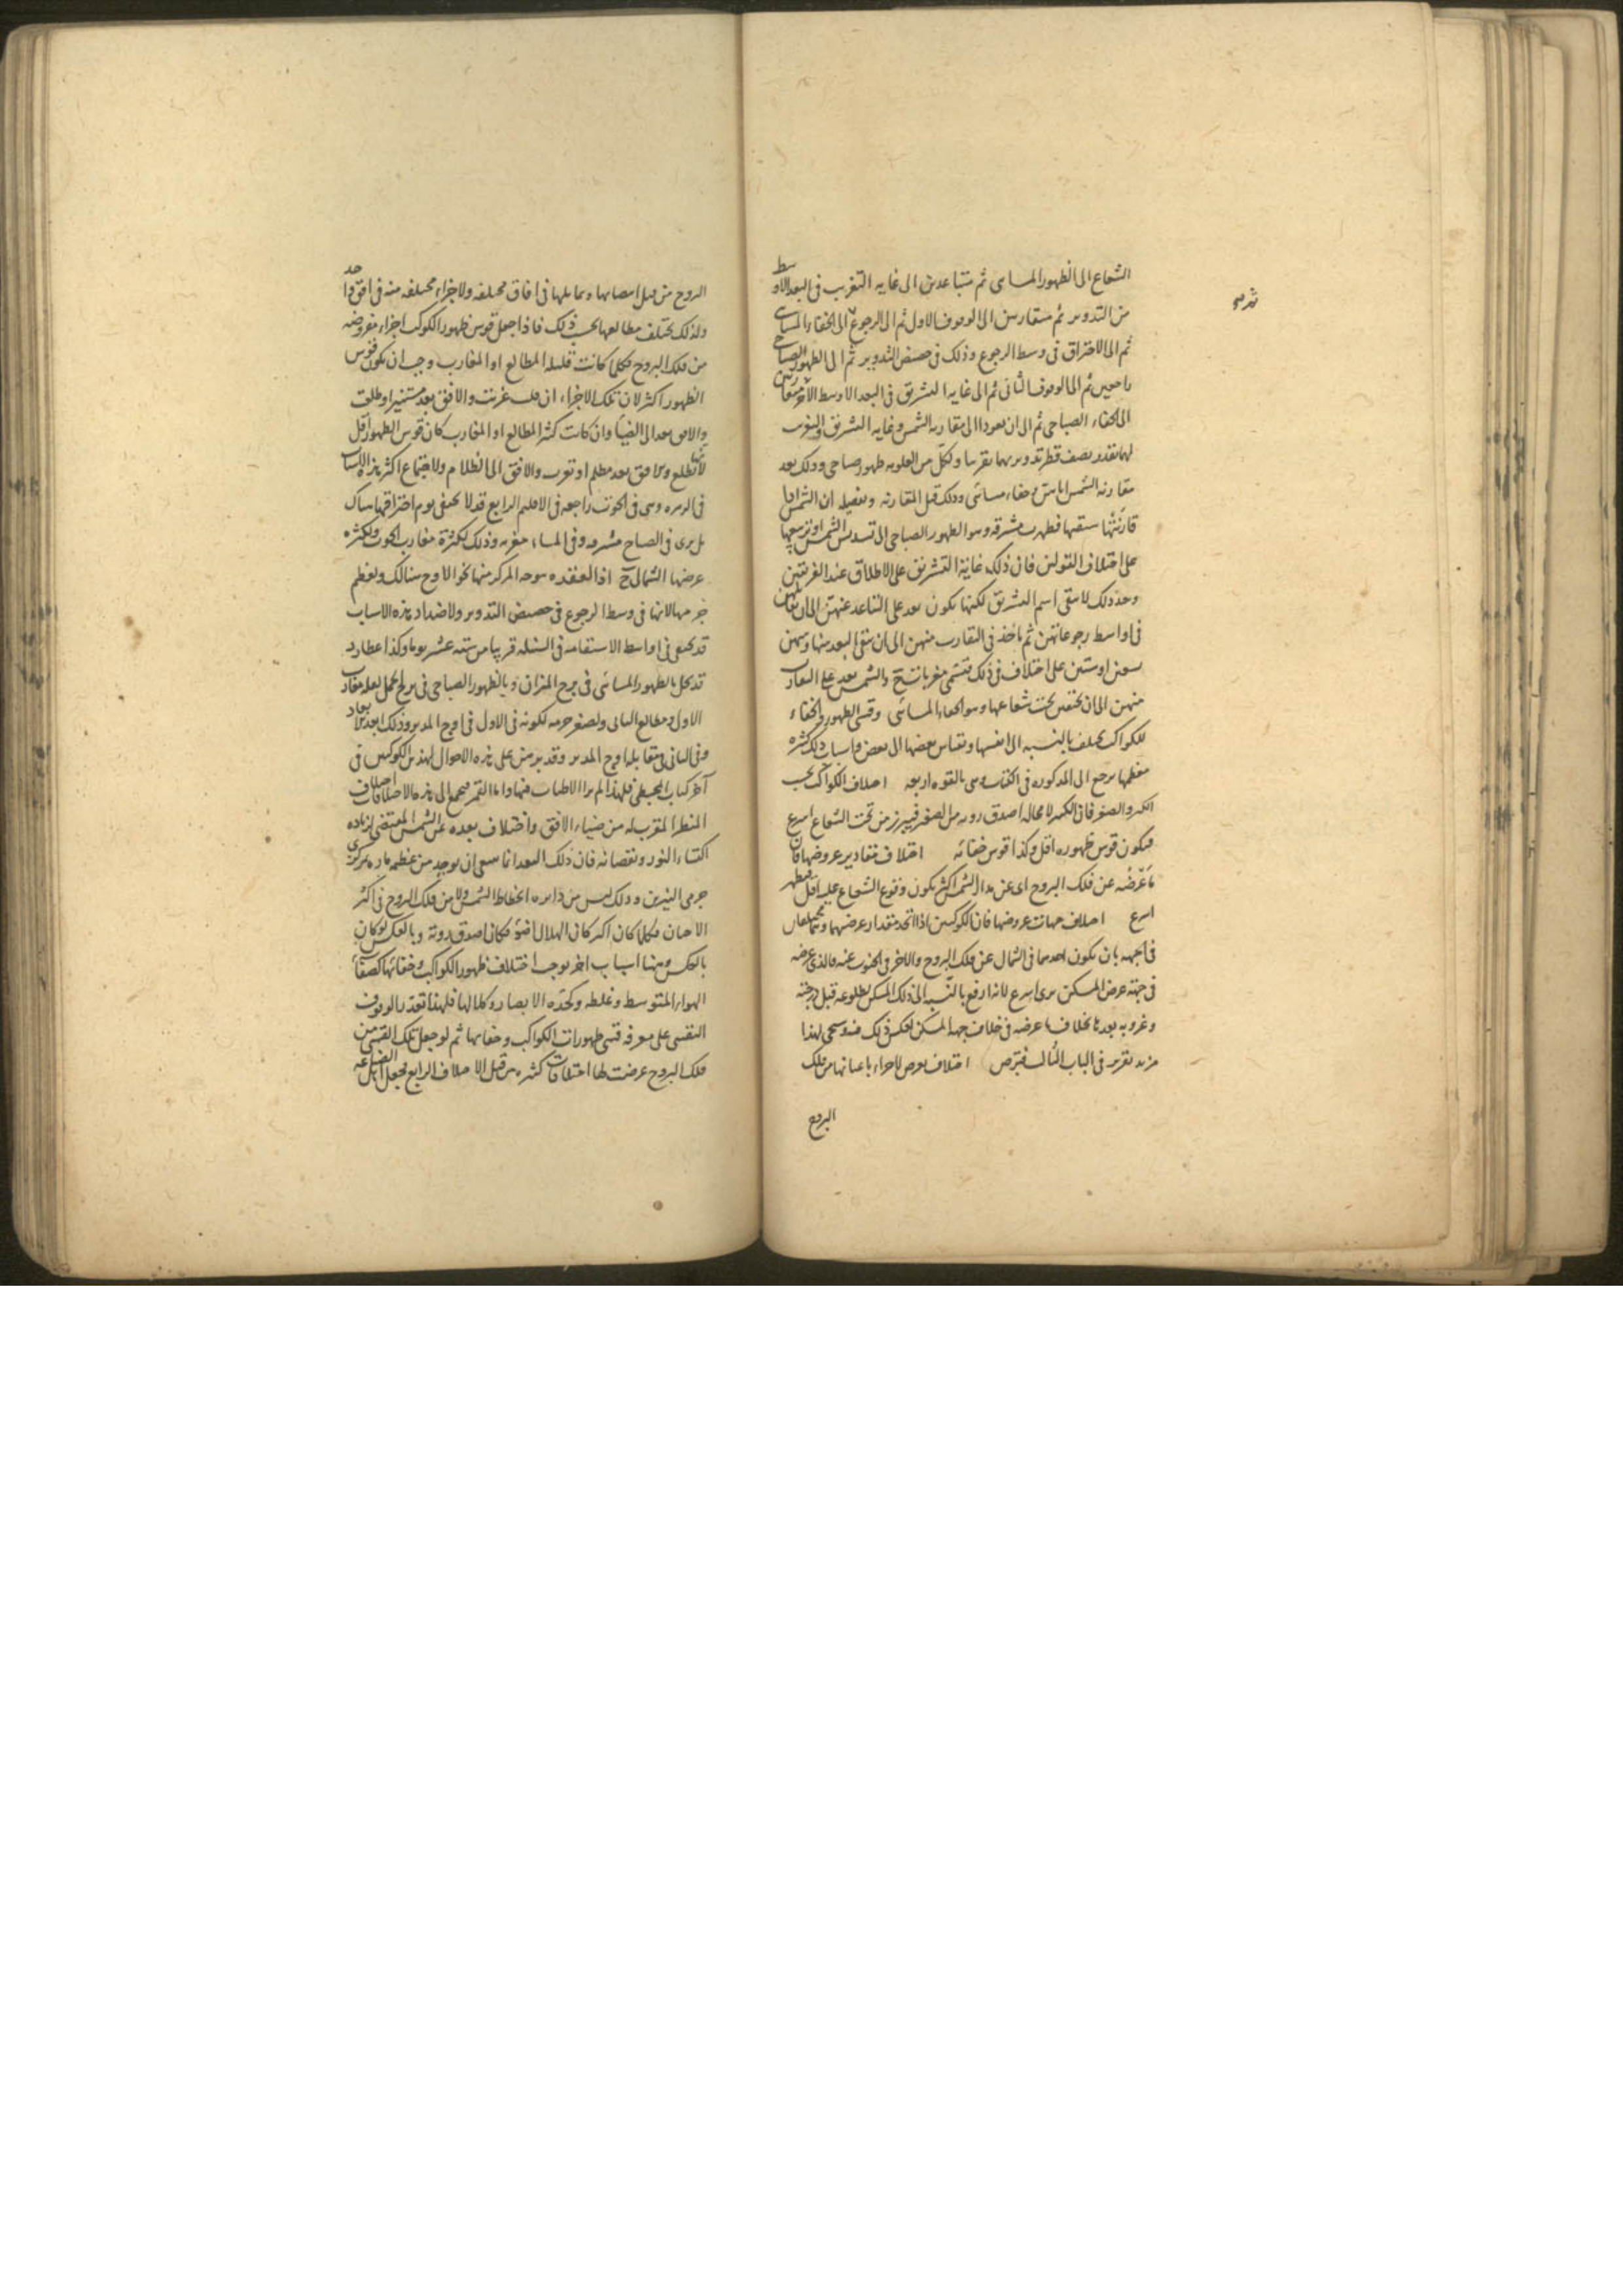 الشعاع الى الظهور المسائى ثم متباعدين الى غايه التغريب فى البعد الاوسط
من التدوير ثم متقاربين الى الوقوف الاول ثم الى الرجوع الى الخفاء المسائى
ثم الى الاحتراق فى وسط الرجوع وذلك فى حضيض التدوير ثم الى الظهور الصباحى
راجعين ثم الى الوقوف الثانى ثم الى غايه التشريق فى البعد الاوسط الآخر متقاربين
الى الخفاء الصباحى ثم الى ان يعودا الى مقارنه الشمس وغايه التشريق والتغريب
لهما بقدر نصف قطر تدويريهما تقريبا ولكل من العلويه ظهور صباحى وذلك بعد
مقارنه الشمس اياهن وخفاء مسائى وذلك قبل المقارنه وتفصيله ان الشمس اذا
قارنتها سبقتها فظهرت مشرقه وهو الظهور الصباحى الى تسديس الشمس او تربيعها
على اختلاف القولين فان ذلك غاية التشريق على الاطلاق عند الفريقين
وبعد ذلك لا يبقى اسم التشريق لكنها تكون بعد على التباعد عنهن الى ان يقابلهن
فى اواسط رجوعاتهن ثم تاخذ فى التقارب منهن الى ان يبقى البعد بينها وبينهن
تسعين او ستين على اختلاف فى ذلك فتسمى مغربات والشمس بعد على التقارب
منهن الى ان يختفين تحت شعاعها وهو الخفاء المسائى وقسى الظهور والخفاء
للكواكب تختلف بالنسبه الى انفسها وبقياس بعضها الى بعض واسباب ذلك كثره
معظمها يرجع الى المذكوره فى الكتاب وهى بالقوه اربعه اختلاف الكواكب بحسب
الكبر والصغر فان الكبير لا محاله اصدق رويه من الصغير فيبرز من تحت الشعاع اسرع
فيكون قوس ظهوره اقل وكذا قوس خفائه اختلاف مقادير عروضها فان
ما عرضه عن فلك البروج اى عن مدار الشمس اكثر يكون وقوع الشعاع عليه اقل فيظهر
اسرع اختلاف جهات عروضها فان الكوكبين اذا اتحد مقدار عرضهما وهما مختلفان
فى الجهه بان يكون احدهما فى الشمال عن فلك البروج والاخر فى الجنوب عنه فالذى عرضه
فى جهته عرض المسكن يرى اسرع لانه ارفع بالنسبه الى ذلك المسكن لطلوعه قبل درجته
وغروبه بعدها بخلاف ما عرضه فى خلاف جهه المسكن لعكس ذلك وسيجى لهذا
مزيد تقرير فى الباب الثالث فتربص اختلاف يعرض لاجزاء باعيانها من فلك
البروج
البروج من قبل انتصابها وتمايلها فى افاق مختلفه ولاجزاء مختلفه منه فى افق واحد
ولذلك تختلف مطالعها بحسب ذلك فاذا جعل قوس ظهور الكوكب اجزاء مفروضه
من فلك البروج فكلما كانت قليله المطالع او المغارب وجب ان يكون قوس
الظهور اكثر لان تلك الاجزاء ان قلت غربت والافق بعد مستنير او طلعت
والافق بعد الى الضياء وان كانت كثير المطالع او المغارب كان قوس الظهور اقل
لانها تطلع والافق بعد مظلم او تغرب والافق الى الظلام ولاجتماع اكثر هذه الاسباب
فى الزهره وهى فى الحوت راجعه فى الاقليم الرابع قد لا تختفى يوم احتراقها هناك
بل يرى فى الصباح مشرقه وفى المساء مغربه وذلك لكثرة مغارب الحوت ولكثره
عرضها الشمالى اذ العقده موجه المركز منها نحو الاوج هنالك ولعظم
جرمها لانها فى وسط الرجوع فى حضيض التدوير ولاضداد هذه الاسباب
قد تختفى فى اواسط الاستقامه فى السنبله قريبا من سته عشر يوما وكذا عطارد
قد يخل بالظهور المسائى فى برج الميزان وبالظهور الصباحى فى برج الحمل لقله مغارب
الاول ومطالع الثانى ولصغر جرمه لكونه فى الاول فى اوج المدير وذلك ابعد ابعاده
وفى الثانى فى مقابله اوج المدير وقد برهن على هذه الاحوال لهذين الكوكبين فى
آخر كتاب المجسطى فلهذا لم نر الاطناب فيها واما القمر فيجمع الى هذه الاختلافات اختلاف
المنظر المقرب له من ضياء الافق واختلاف بعده عن الشمس المقتضى لزياده
اكتساء النور ونقصانه فان ذلك البعد انما ينبغى ان يوجد من عظيمه ماره بمركزى
جرمى النيرين وذلك ليس من دايره انحطاط الشمس ولا من فلك البروج فى اكثر
الاحيان فكلما كان اكبر كان الهلال اضوء فكان اصدق رويه وبالعكس لو كان
بالعكس وههنا اسباب اخر يوجب اختلاف ظهور الكواكب وخفائها كصفاء
الهواء المتوسط وغلظه وكحده الابصار وكلالها فلهذا تعذر الوقوف
النفسى على معرفه قسى ظهورات الكواكب وخفائها ثم لو جعل تلك القسى من
فلك البروج عرضت لها اختلافات كثيره من قبل الاختلاف الرابع فجعل اهل الصناعه